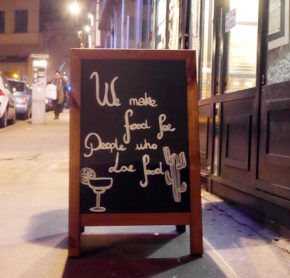 We make
food foe
People who
loe food